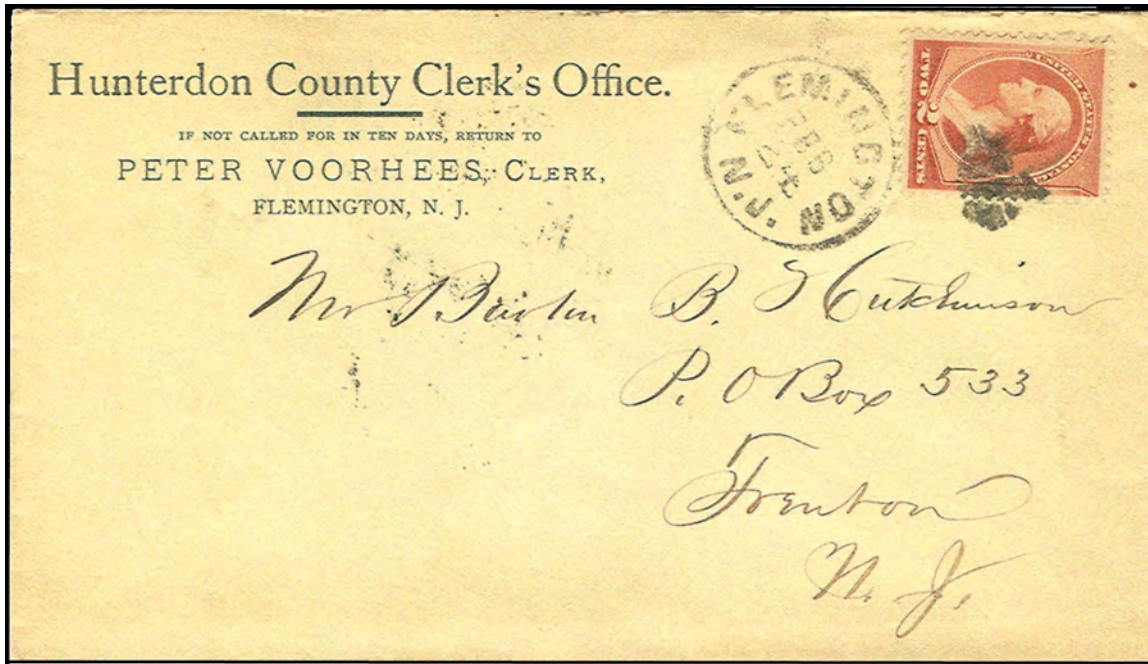 Hunterdon County Clerk's Office.
IF NOT CALLED FOR IN TEN DAYS, RETURN TO
PETER VOORHEES, CLERK,
FLEMINGTON, N. J.
FLEMINGTON N.J.
FEB
24
UNITED STATES POSTAGE
TWO 2 CENTS
Mr Burton B. Hutchinson
P. O Box 533
Trenton
N. J.